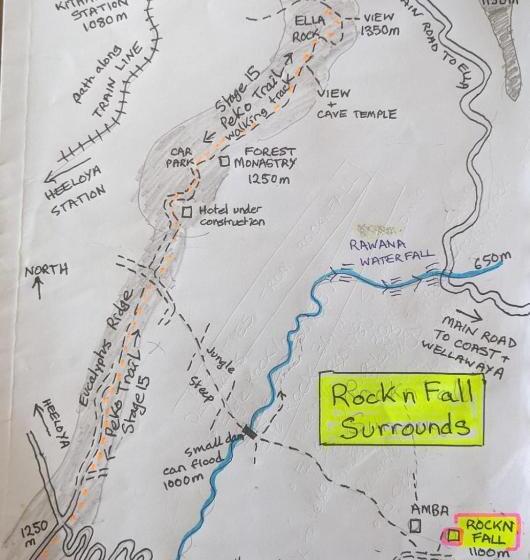 STATION
1080m
path along
TRAIN LINE
HEELOYA
STATION
ELLA
ROCK
VIEW
1350m
MAIN ROAD TO ELLA
Stage 15
Peko Trail
walking track
VIEW
+
CAVE TEMPLE
CAR
PARK
FOREST
MONASTRY
1250m
Hotel under
construction
NORTH
RAWANA
WATERFALL
650m
MAIN ROAD
TO COAST +
WELLAWAYA
Eucalyptus Ridge
Peko Trail
Stage 15
HEELOYA
Jungle
Steep
small dam
can flood
1000m
Rock n Fall
Surrounds
1250
m
AMBA
ROCKN
FALL
1100m